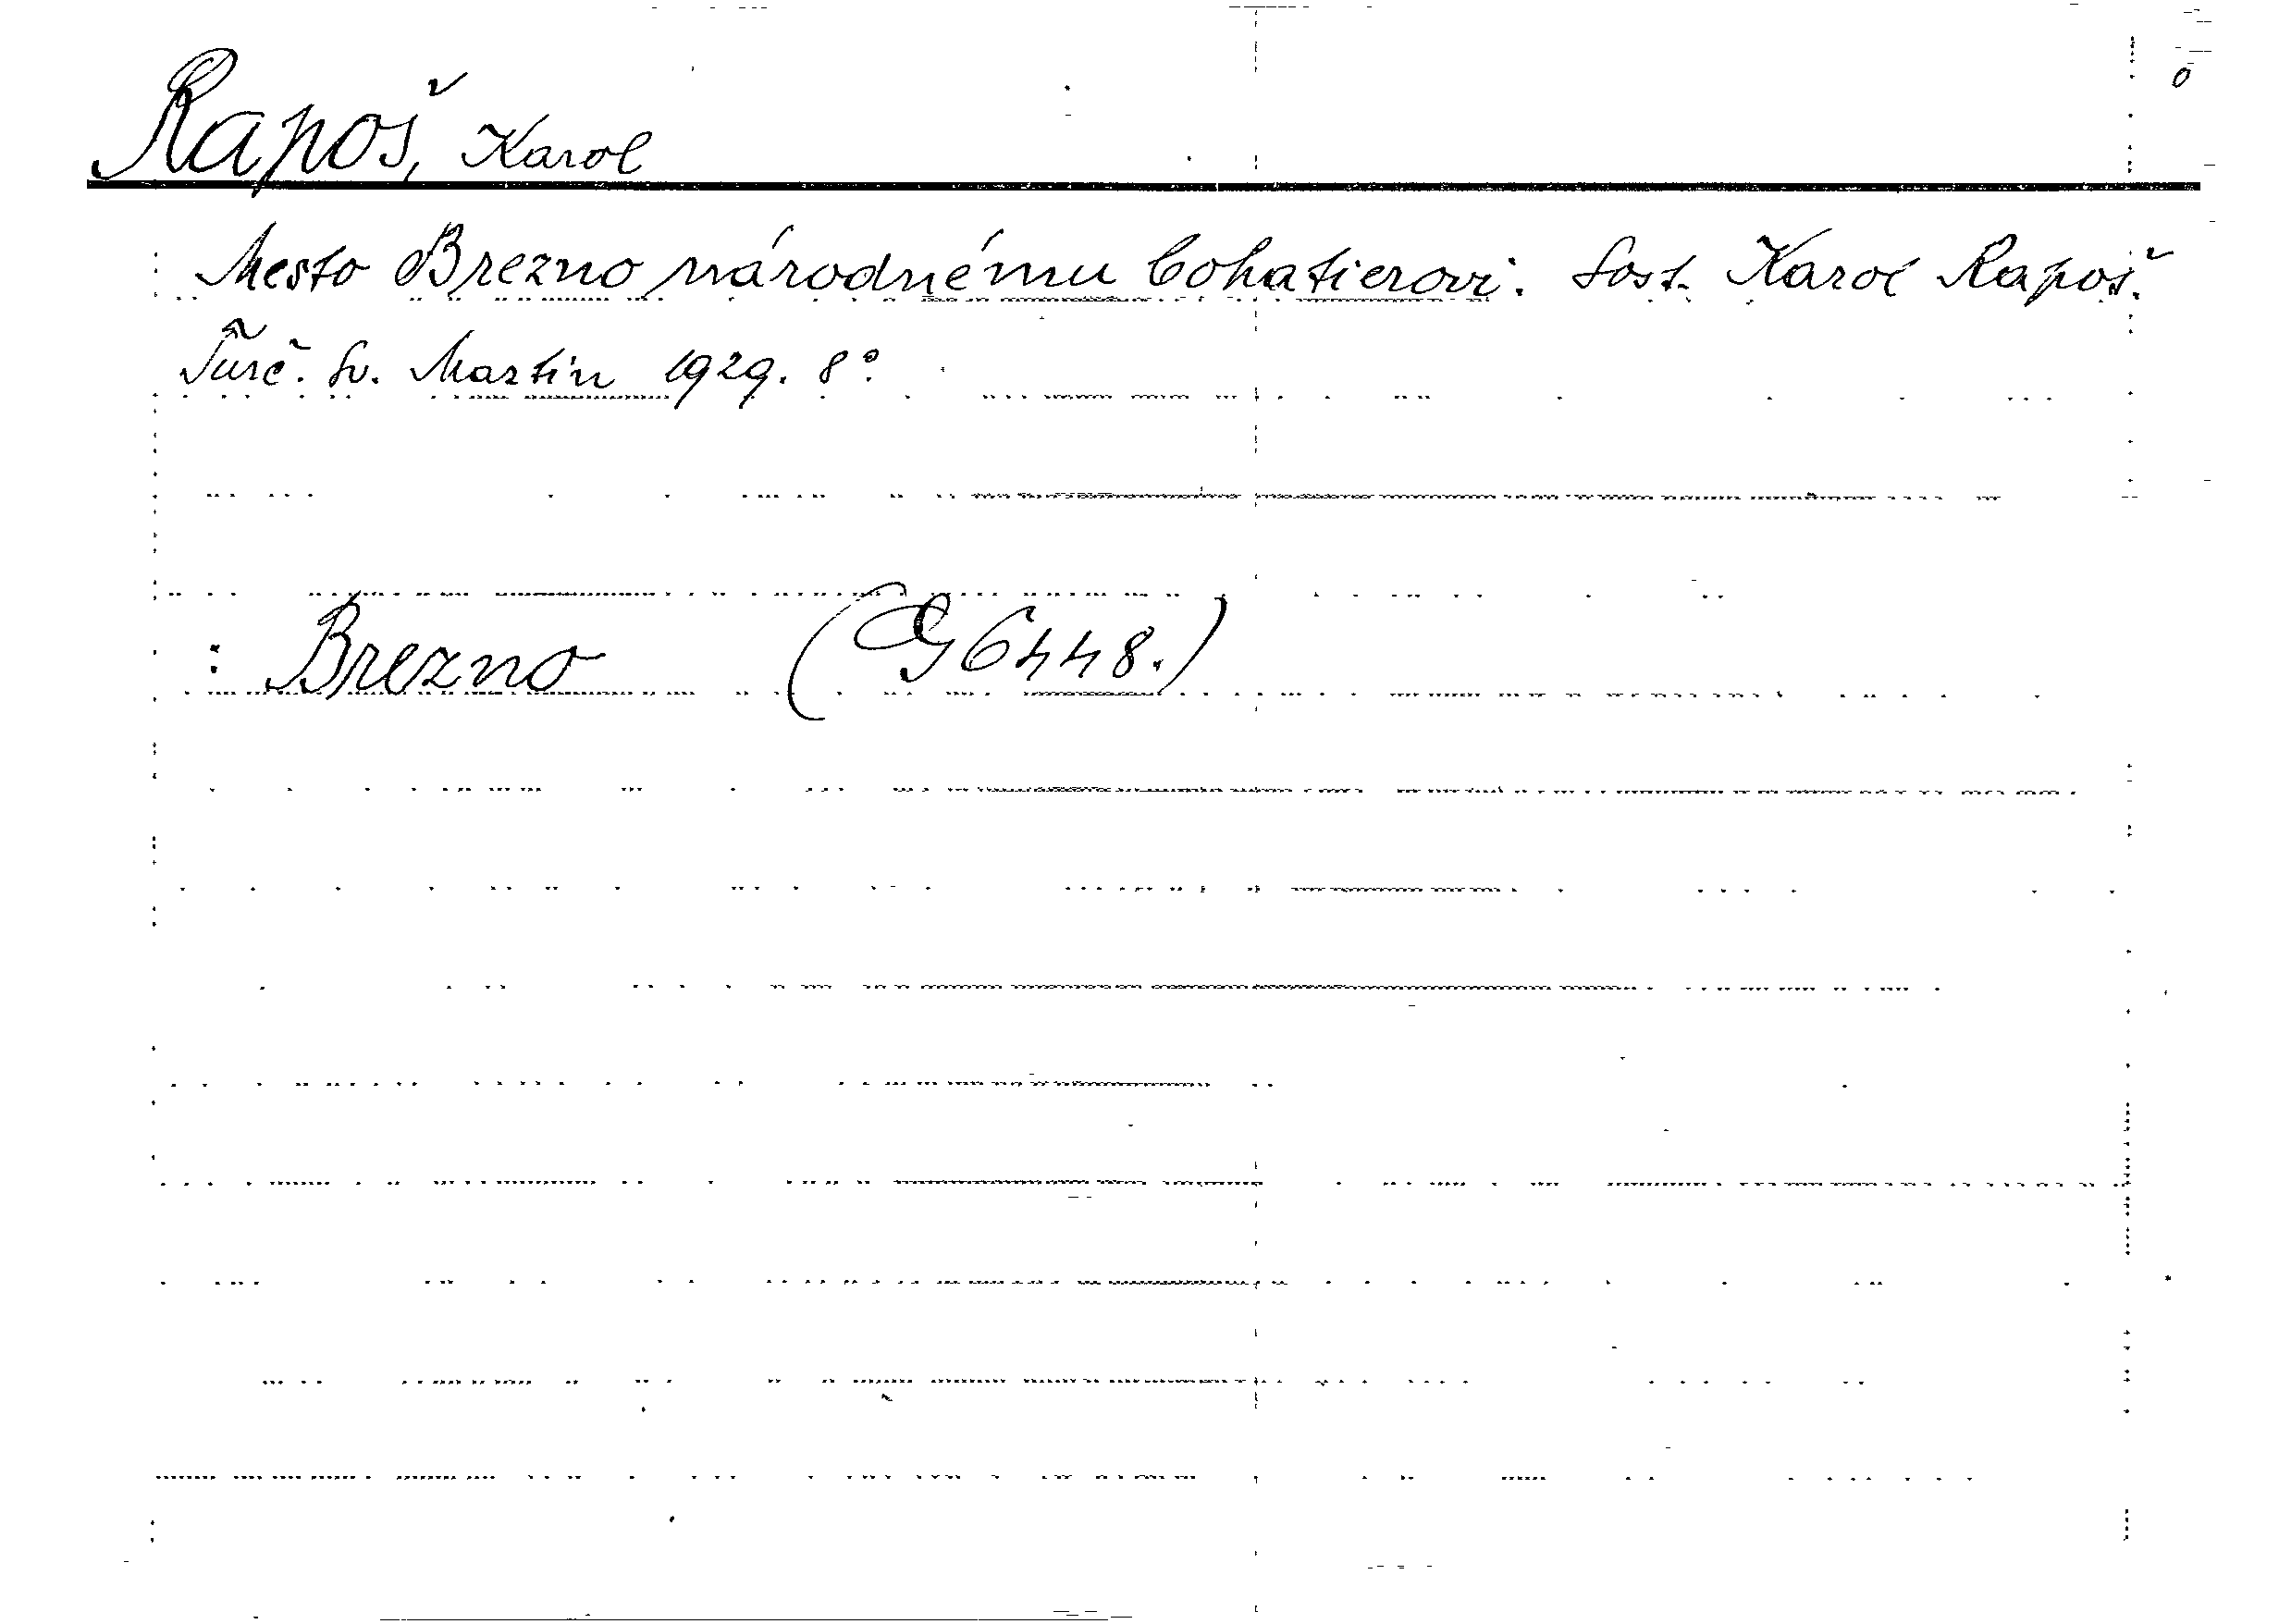 Rapoš, Karol
Mesto Brezno národnému bohatierovi. Sost. Karol Rapoš.
Turč. Sv. Martin 1929. 8°.
: Brezno (G 6448.)